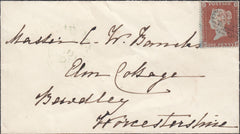 Master C. W. Bancks
Elm Cottage
Bewdley
Worcestershire